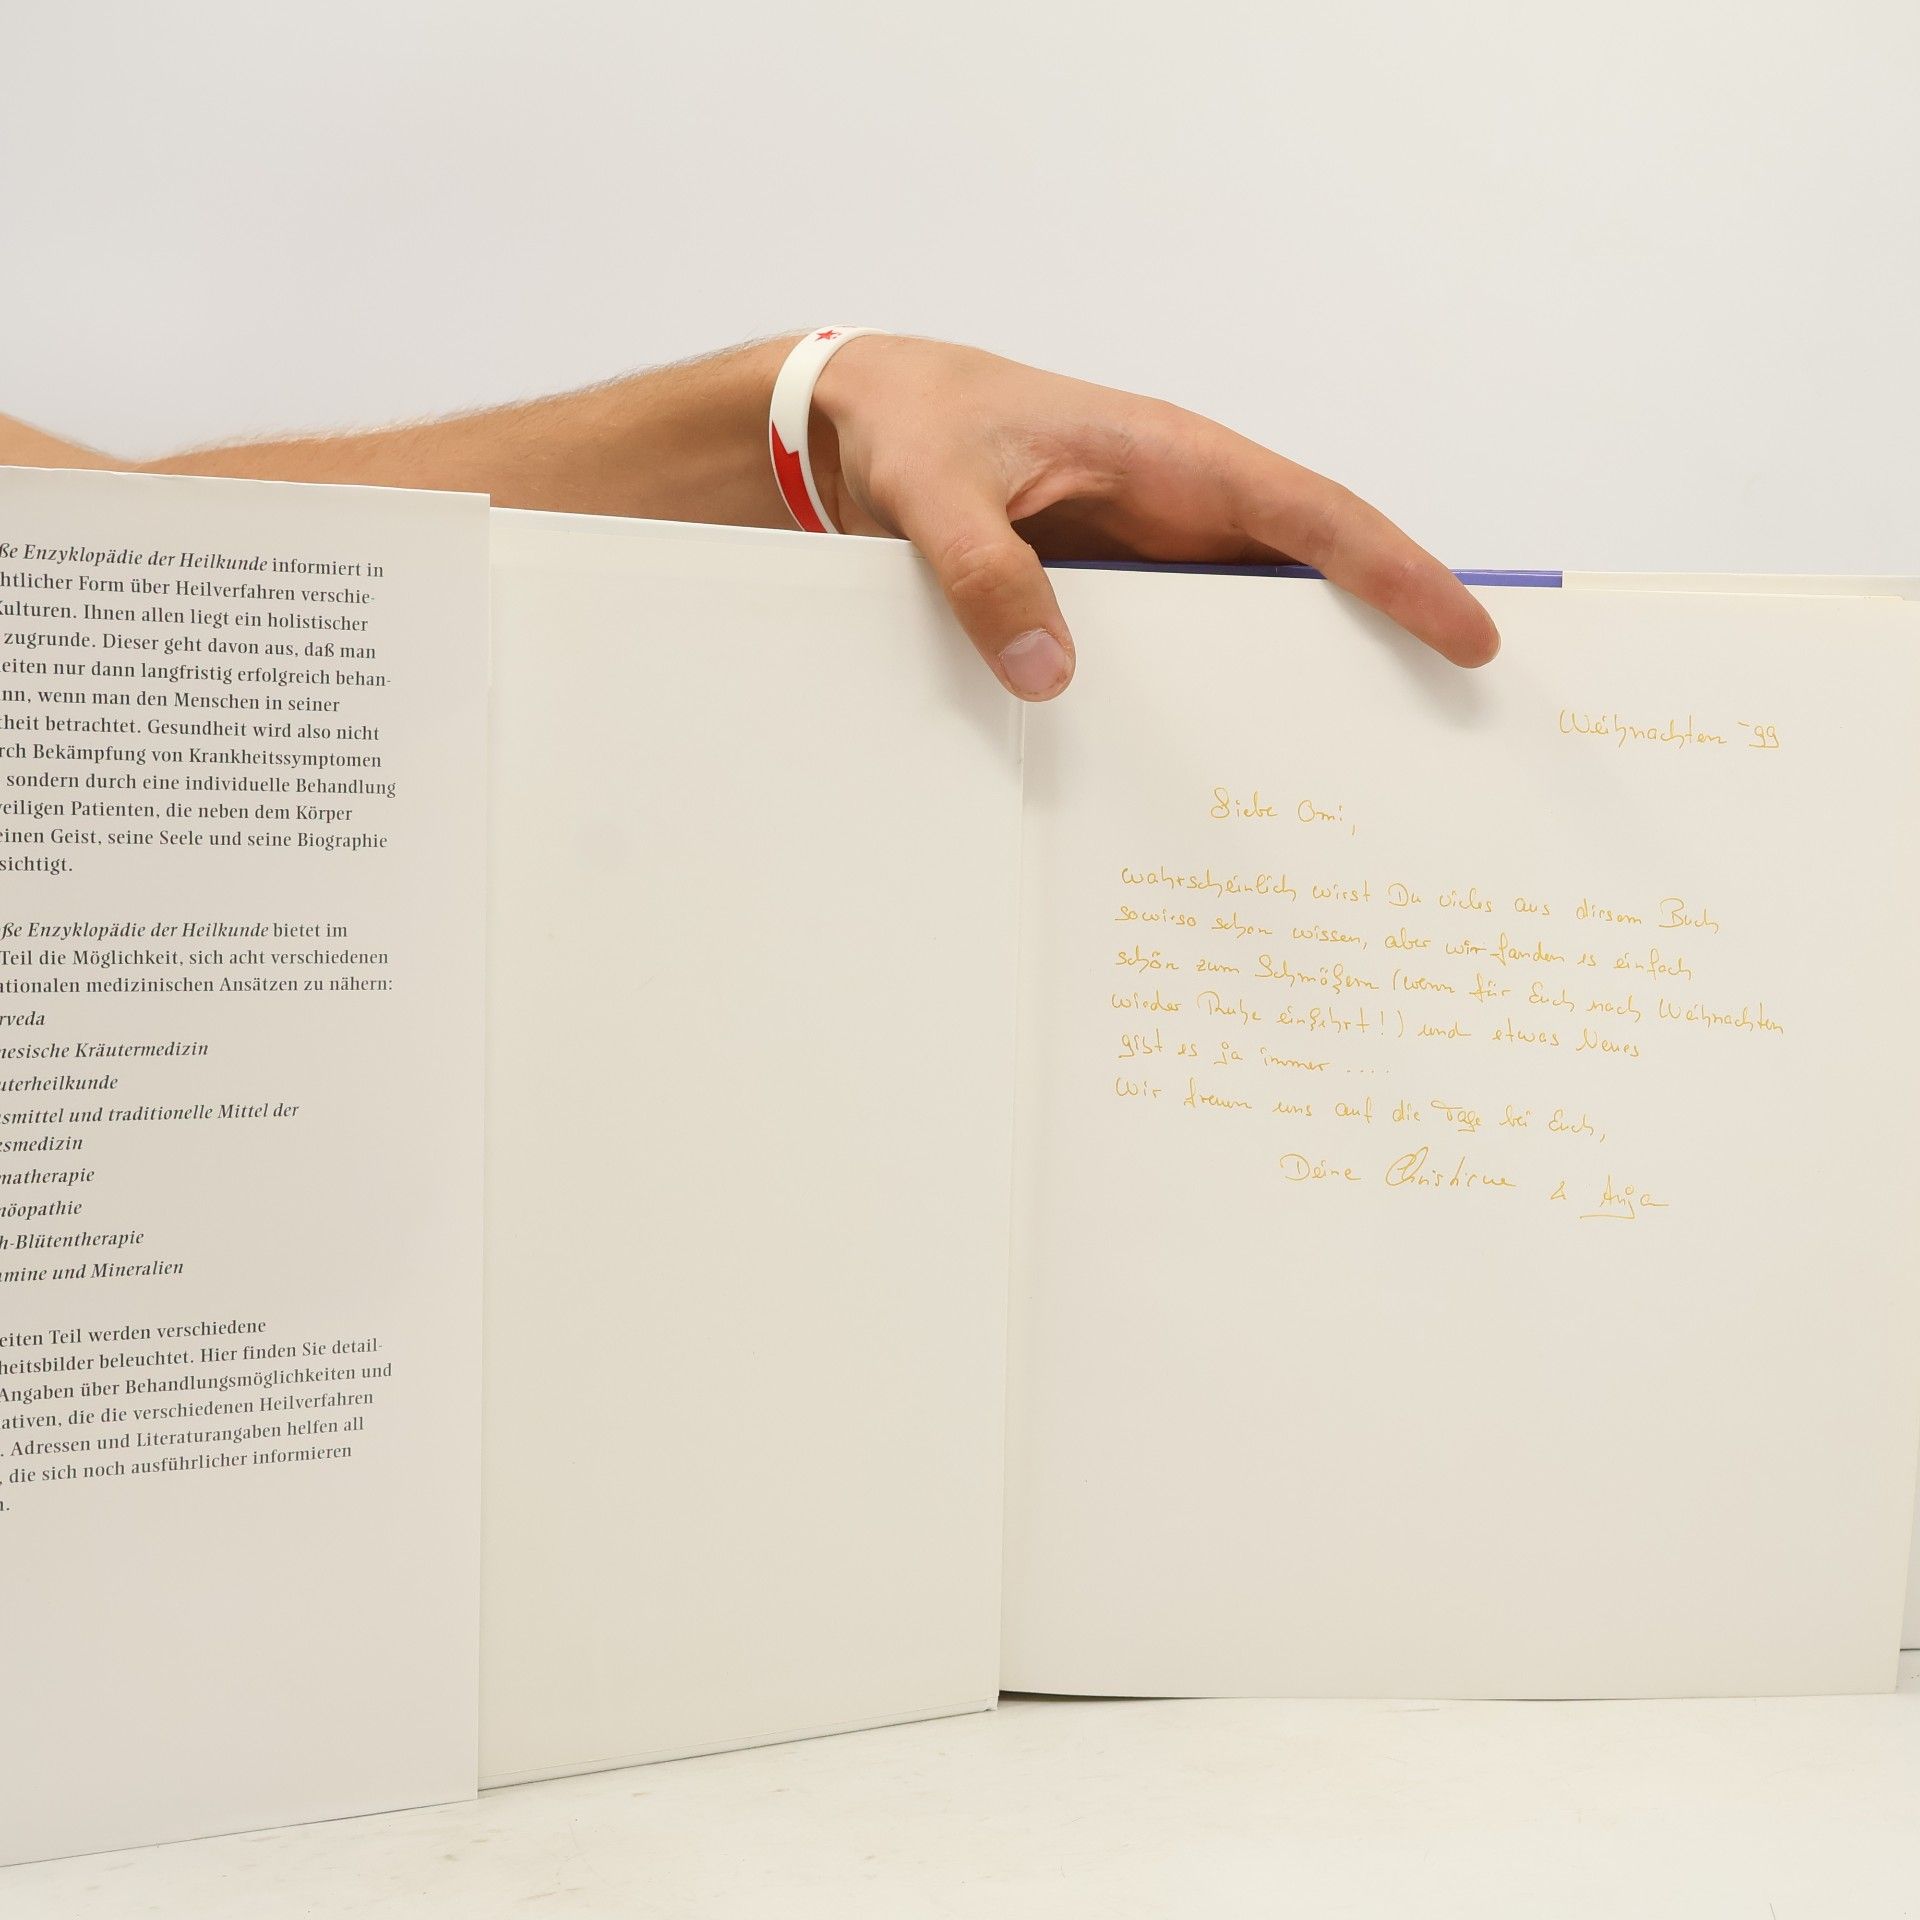 ße Enzyklopädie der Heilkunde informiert in
htlicher Form über Heilverfahren verschie-
Kulturen. Ihnen allen liegt ein holistischer
zugrunde. Dieser geht davon aus, daß man
eiten nur dann langfristig erfolgreich behan-
nn, wenn man den Menschen in seiner
theit betrachtet. Gesundheit wird also nicht
rch Bekämpfung von Krankheitssymptomen
, sondern durch eine individuelle Behandlung
veiligen Patienten, die neben dem Körper
einen Geist, seine Seele und seine Biographie
sichtigt.
ße Enzyklopädie der Heilkunde bietet im
Teil die Möglichkeit, sich acht verschiedenen
ationalen medizinischen Ansätzen zu nähern:
rveda
nesische Kräutermedizin
uterheilkunde
smittel und traditionelle Mittel der
esmedizin
matherapie
nöopathie
h-Blütentherapie
amine und Mineralien
eiten Teil werden verschiedene
heitsbilder beleuchtet. Hier finden Sie detail-
Angaben über Behandlungsmöglichkeiten und
ativen, die die verschiedenen Heilverfahren
. Adressen und Literaturangaben helfen all
, die sich noch ausführlicher informieren
n.
Weihnachten '99
Liebe Omi,
wahrscheinlich wirst Du vieles aus diesem Buch
sowieso schon wissen, aber wir fanden es einfach
schön zum Schmökern (wenn für Euch nach Weihnachten
wieder Ruhe einkehrt!) und etwas Neues
gibt es ja immer ....
Wir freuen uns auf die Tage bei Euch,
Deine Christine & Anja